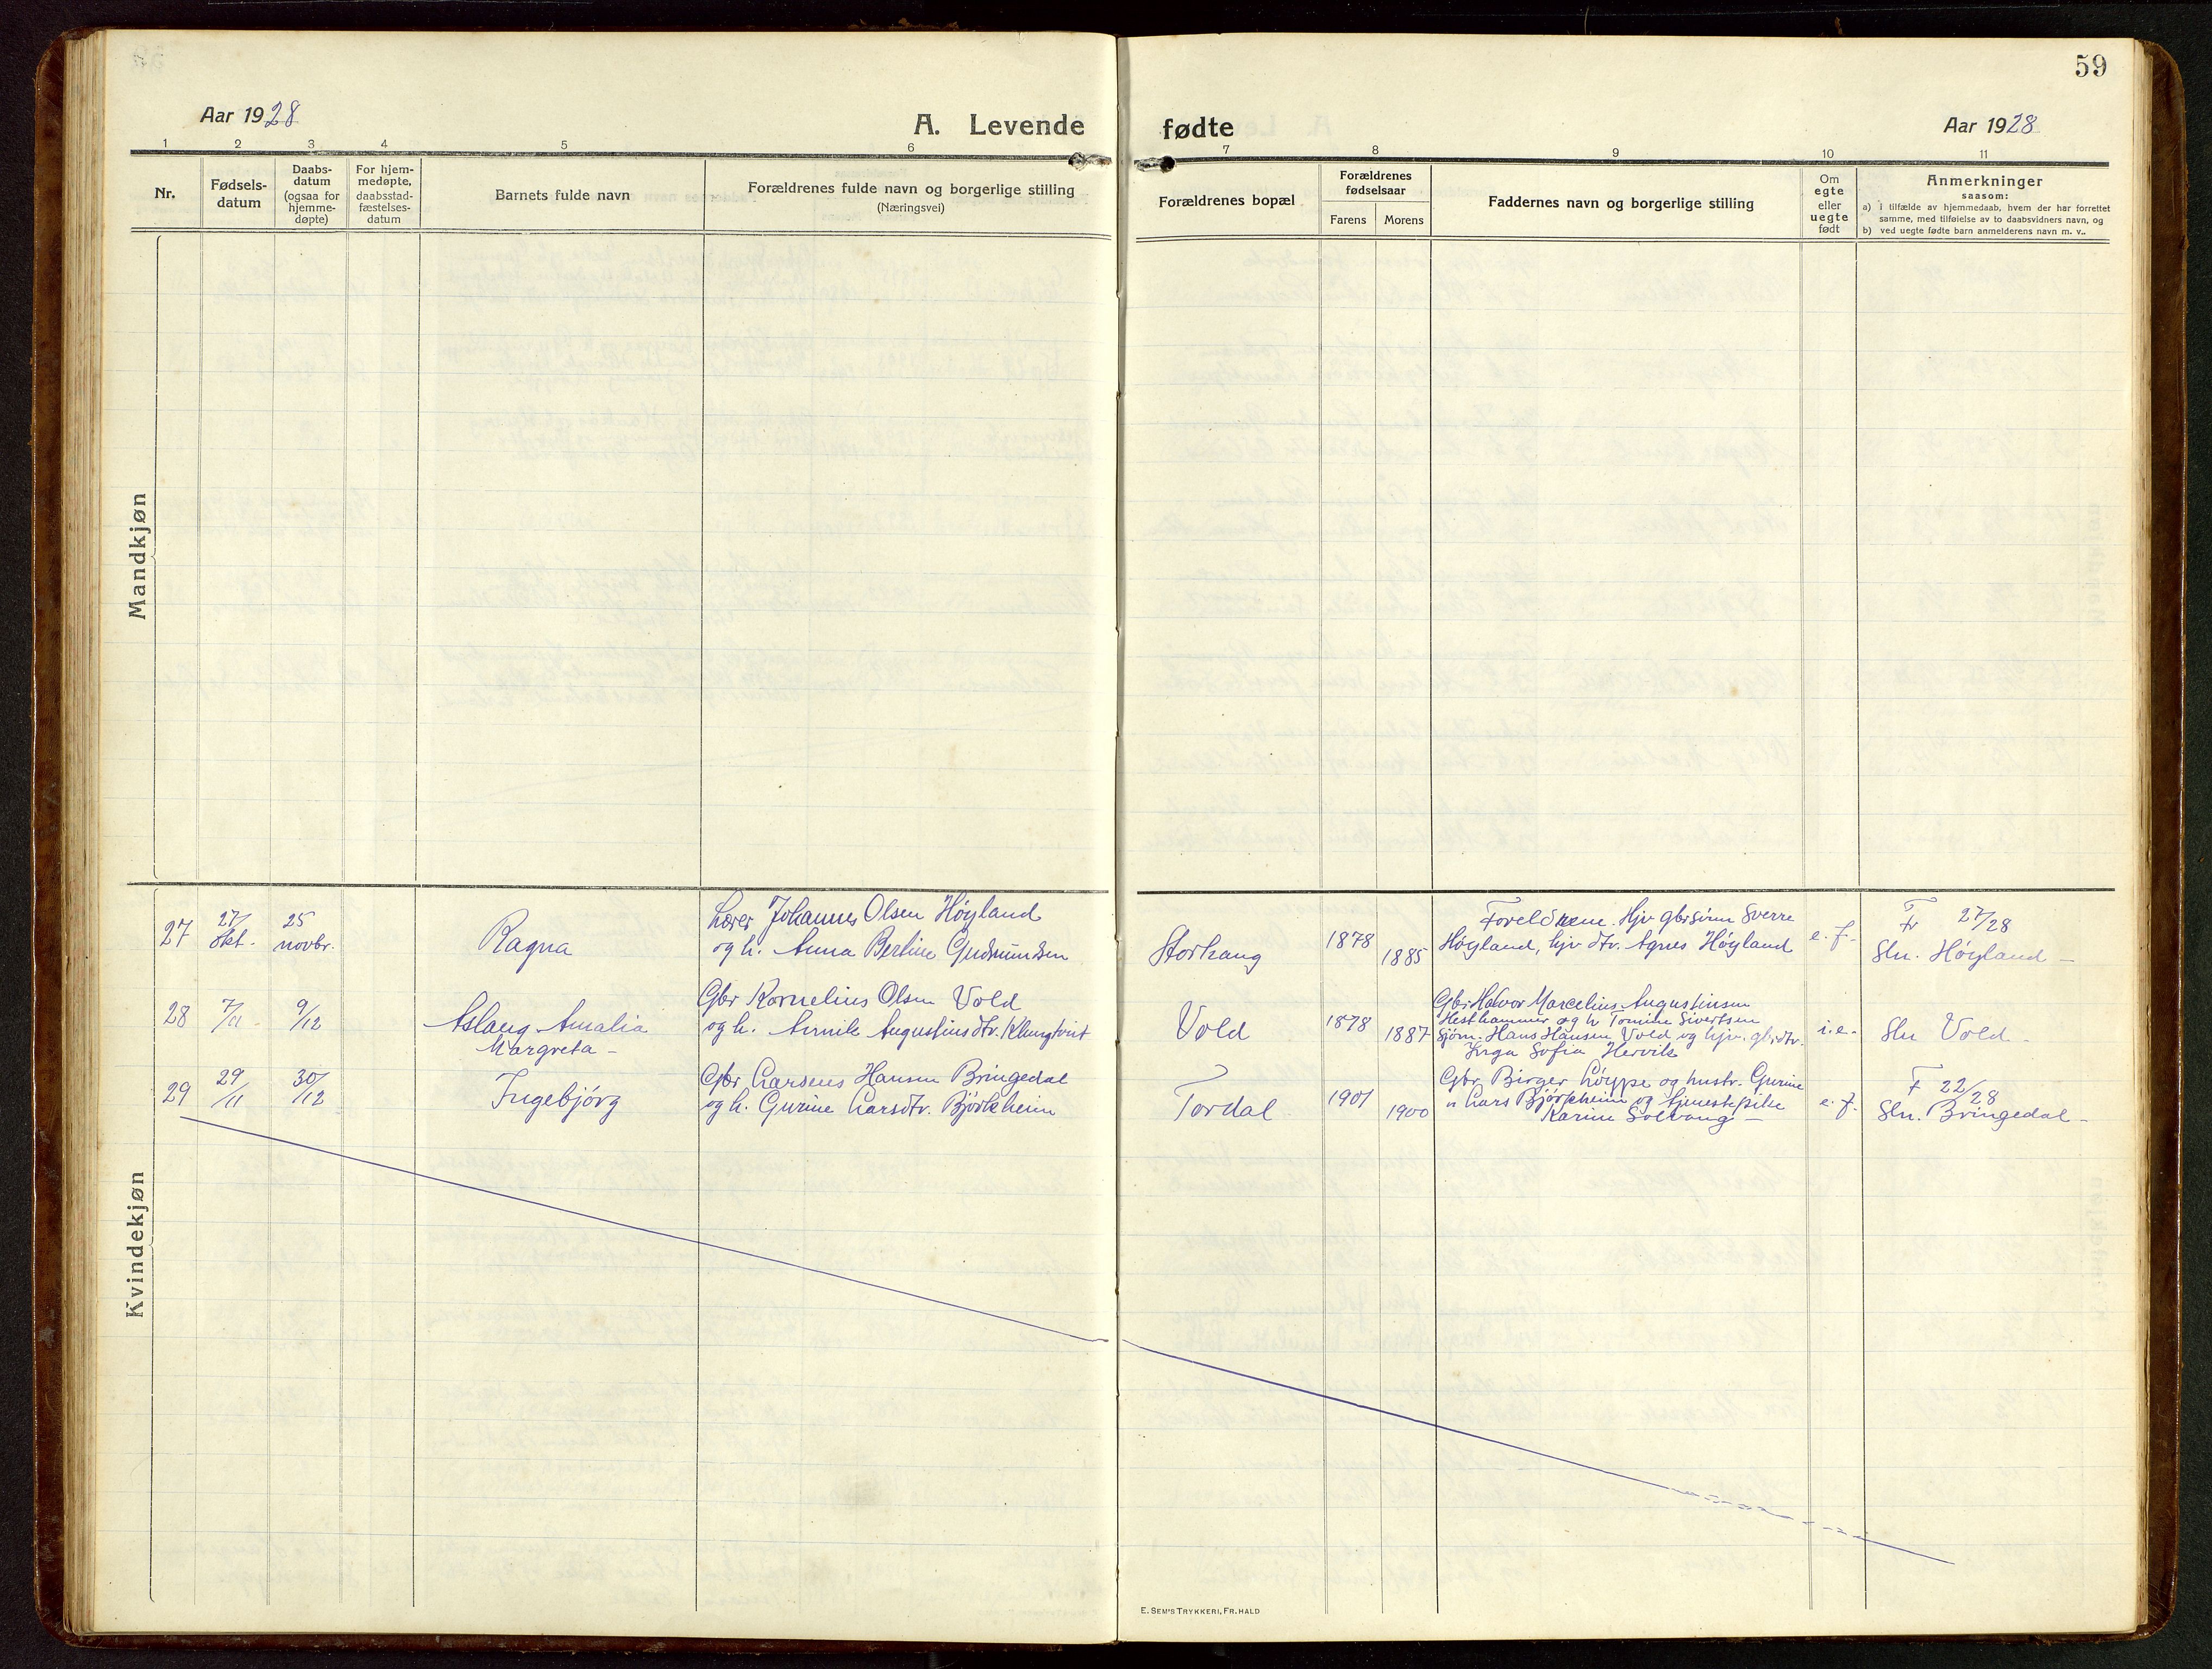 59
Aar 1928
A. Levende
fødte
Aar 1928
1 2 3 4 5 6
7 8 9 10 11
Nr.
Fødsels-
datum
Daabs-
datum
(ogsaa for
hjemme-
døpte)
For hjem-
medøpte,
daabsstad-
fæstelses-
datum
Barnets fulde navn
Forældrenes fulde navn og borgerlige stilling
(Næringsvei)
Forældrenes bopæl
Forældrenes
fødselsaar
Farens Morens
Faddernes navn og borgerlige stilling
Om
egte
eller
uegte
født
Anmerkninger
saasom:
a) i tilfælde av hjemmedaab, hvem der har forrettet
samme, med tilføielse av to daabsvidners navn, og
b) ved uegte fødte barn anmelderens navn m. v..
Mandkjøn
Kvindekjøn
27
27/
okt.
25
novbr.
Ragna
Lærer Johannes Olsen Høyland
og h. Anna Bertine Gudmundsen
Storhaug
1878
1885
Foreldrene. Hjv gbrsønn Sverre
Høyland, hjv dtr. Agnes Høyland
e. f.
Fr 27/28
Sln. Høyland
28
7/11
9/12
Aslaug Amalia
Margreta
Gbr Kornelius Olsen Vold
og h. Augustinsdtr. Klungtveit
Vold
1878
1887
Gbr Halvor Marcelius Augustinsen
Hesthammer og h Tomine Sivertsen
Sjöm. Hans Hansen Vold og hjv. gbrdtr.
Inga Sofia Hervik
i. e.
Sln Vold
29
29/11
30/12
Ingebjörg
Gbr Larsens Hansen Bringedal
og h. Gurine Larsdtr. Björkheim
Tordal
1901
1900
Gbr. Birger Løyppe og hustr. Gurine
" Lars Björkheim og tjenestepike
Karine Solvang
e. f.
F 22/28
Sln. Bringedal
E. SEM'S TRYKKERI, FR.HALD